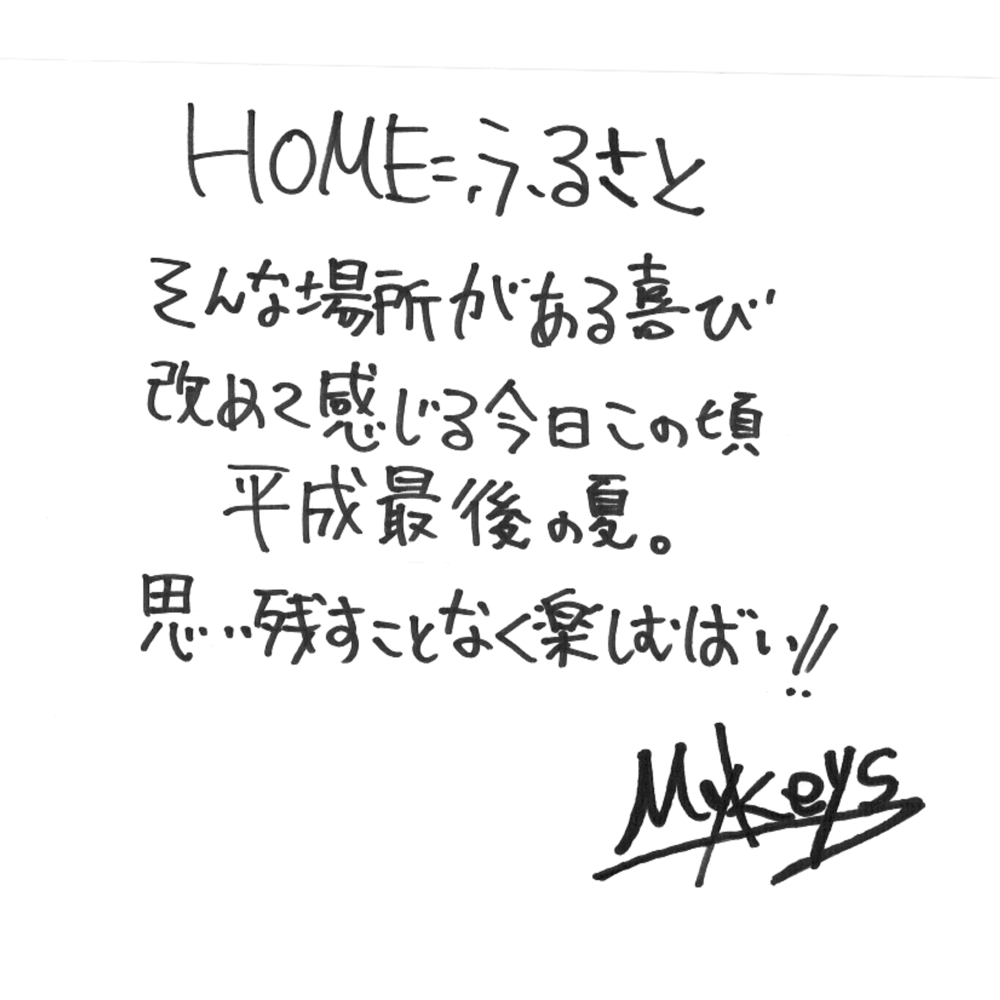 HOME=ふるさと
そんな場所がある喜び
改めて感じる今日この頃
平成最後の夏。
思い残すことなく楽しむばい!!
Mykeys